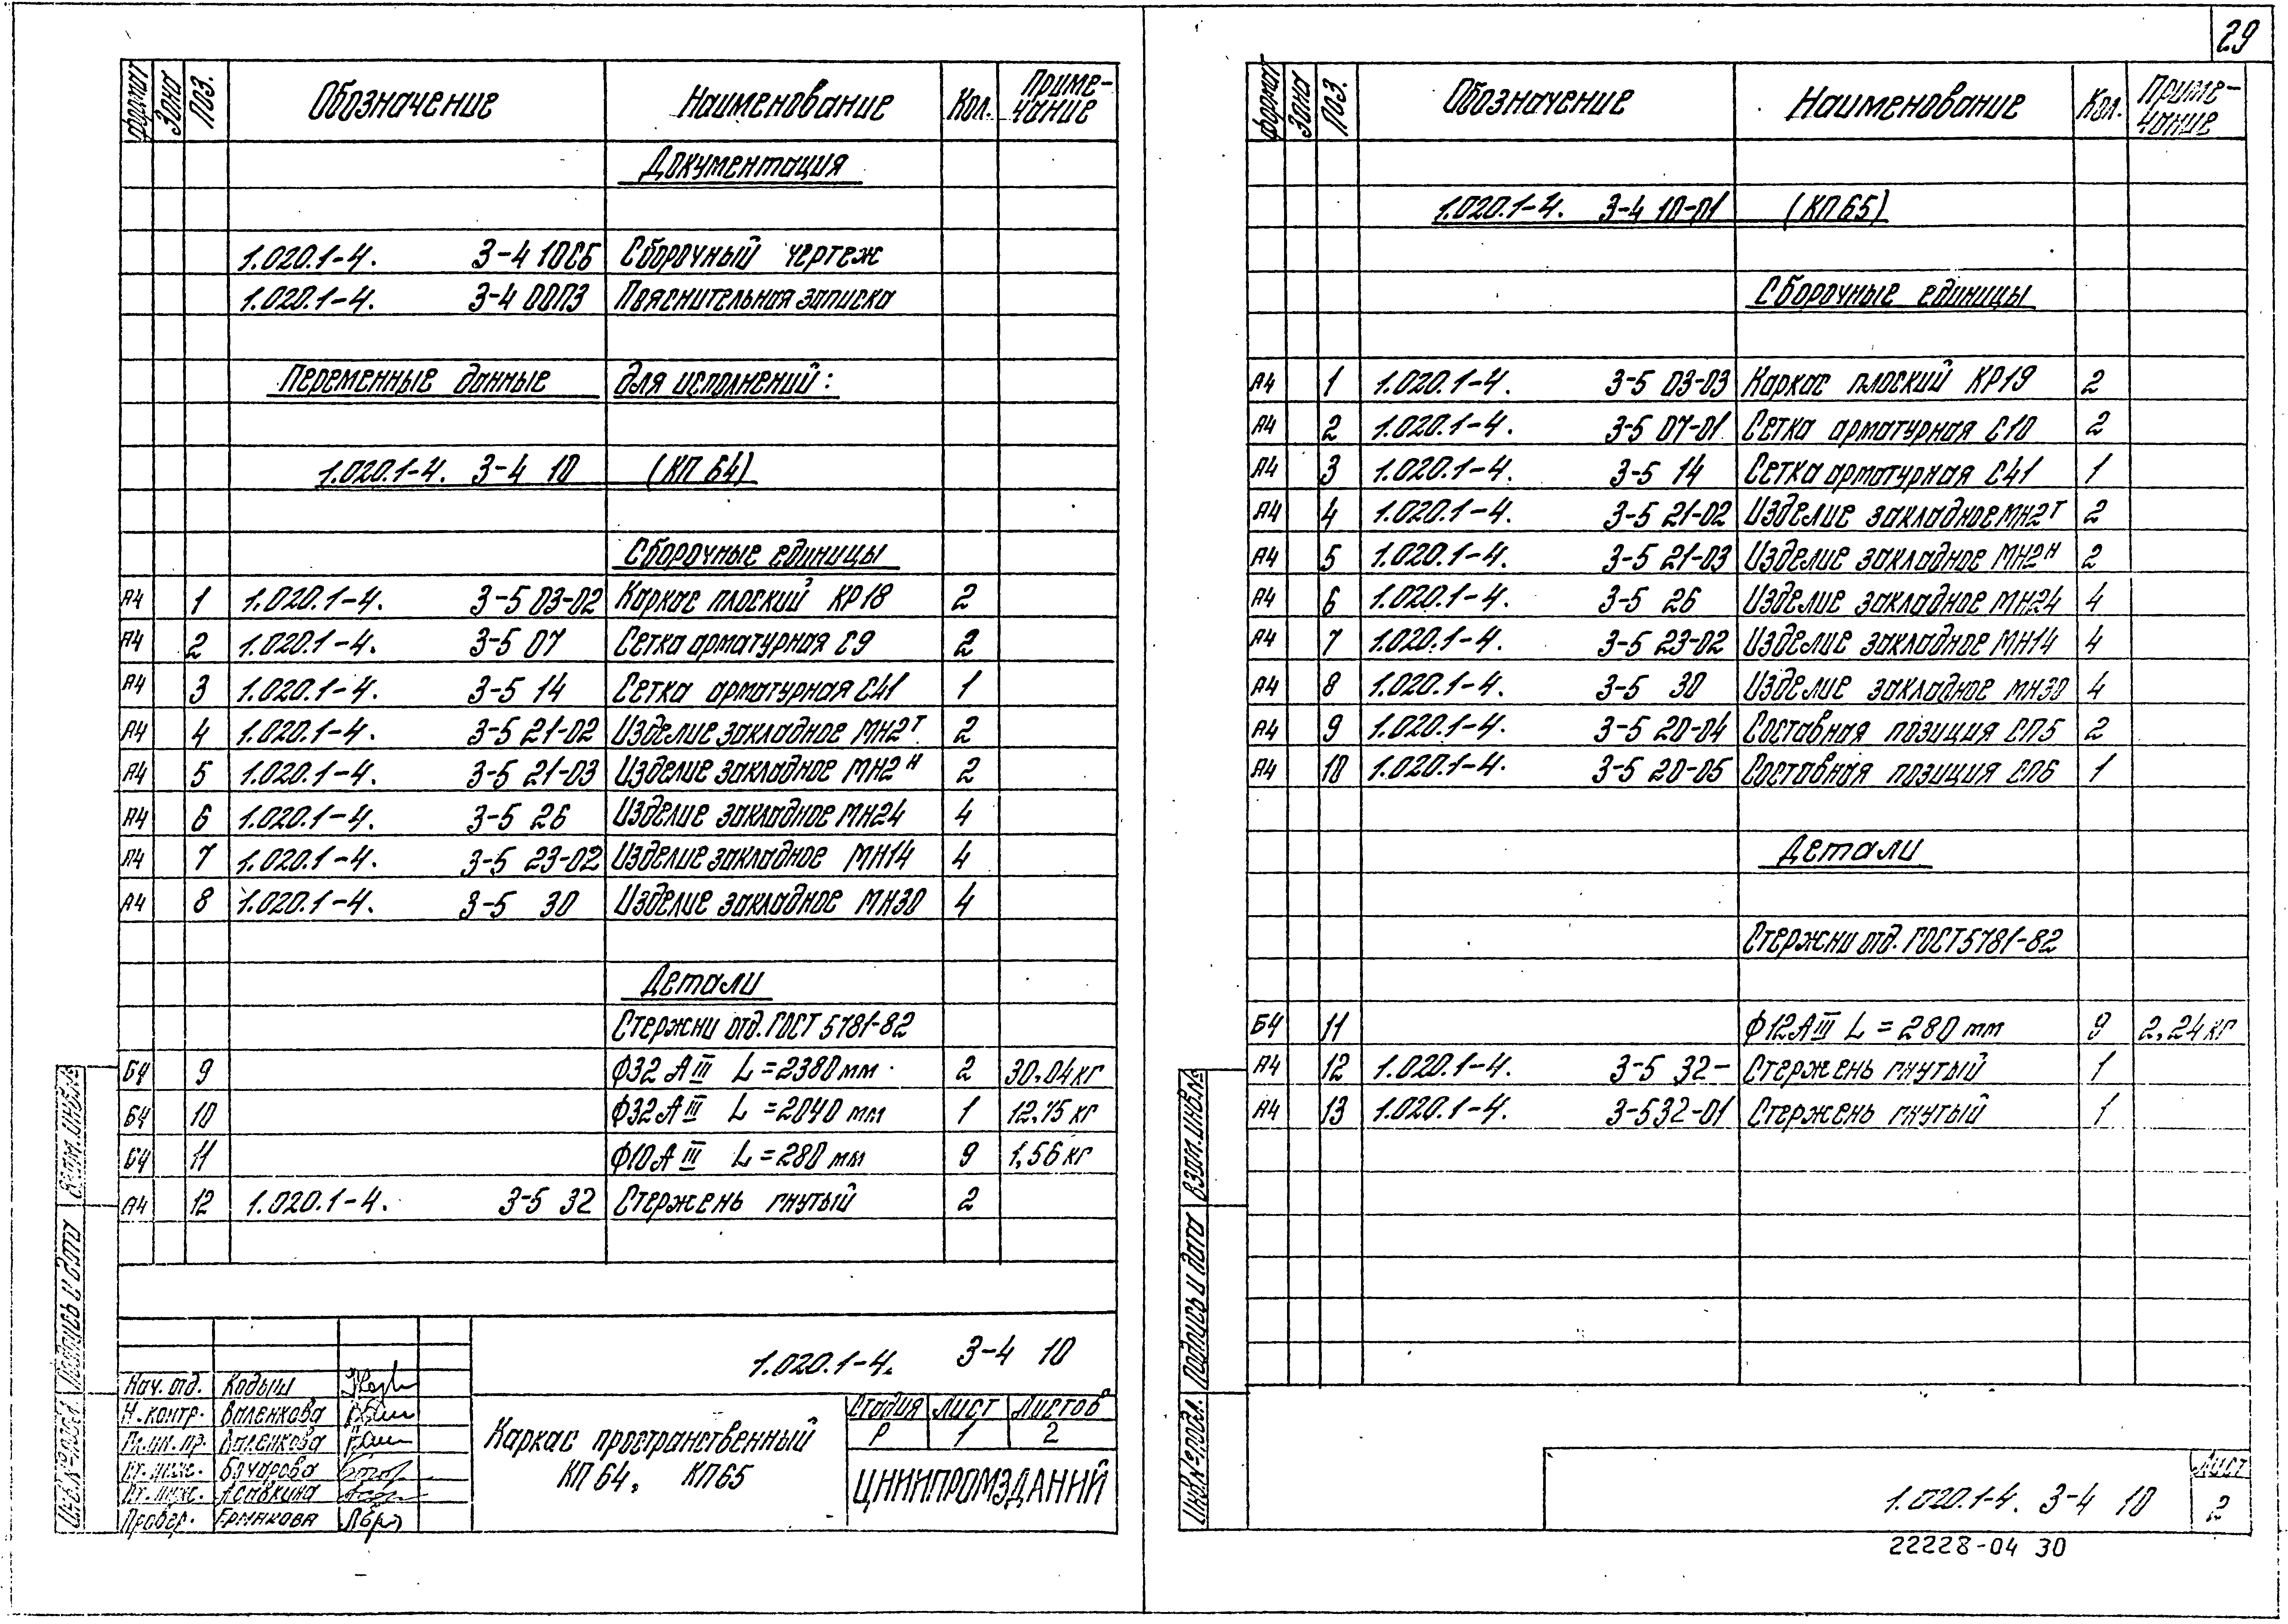 29
формат Зона Поз. Обозначение Наименование Кол. Приме-
чание
Документация
1.020.1-4. 3-4 10СБ Сборочный чертеж
1.020.1-4. 3-4 00ПЗ Пояснительная записка
Переменные данные для исполнений:
1.020.1-4. 3-4 10 (КП 64)
Сборочные единицы
А4 1 1.020.1-4. 3-5 03-02 Каркас плоский КР18 2
А4 2 1.020.1-4. 3-5 07 Сетка арматурная С9 2
А4 3 1.020.1-4. 3-5 14 Сетка арматурная С41 1
А4 4 1.020.1-4. 3-5 21-02 Изделие закладное МН2Т 2
А4 5 1.020.1-4. 3-5 21-03 Изделие закладное МН2Н 2
А4 6 1.020.1-4. 3-5 26 Изделие закладное МН24 4
А4 7 1.020.1-4. 3-5 23-02 Изделие закладное МН14 4
А4 8 1.020.1-4. 3-5 30 Изделие закладное МН30 4
Детали
Стержни отд. ГОСТ 5781-82
Б4 9 Ф32 АIII L=2380мм 2 30,04кг
Б4 10 Ф32АIII L=2040 мм 1 12,75 кг
Б4 11 Ф10АIII L=280 мм 9 1,56 кг
А4 12 1.020.1-4. 3-5 32 Стержень гнутый 2
Инв.№подл. Подпись и дата Взам.инв.№
1.020.1-4. 3-4 10
Нач. отд. Кодыш
Н.контр. Валенкова
Гл.ин. пр. Валенкова
Ст. инж. Бочарова
Ст. инж. Асавкина
Провер. Ермакова
Каркас пространственный
КП 64, КП65
Стадия Лист Листов
Р 1 2
ЦНИИПРОМЗДАНИЙ
формат Зона Поз. Обозначение Наименование Кол. Приме-
чание
1.020.1-4. 3-4 10-01 (КП 65)
Сборочные единицы
А4 1 1.020.1-4. 3-5 03-03 Каркас плоский КР19 2
А4 2 1.020.1-4. 3-5 07-01 Сетка арматурная С10 2
А4 3 1.020.1-4. 3-5 14 Сетка арматурная С41 1
А4 4 1.020.1-4. 3-5 21-02 Изделие закладное МН2Т 2
А4 5 1.020.1-4. 3-5 21-03 Изделие закладное МН2Н 2
А4 6 1.020.1-4. 3-5 26 Изделие закладное МН24 4
А4 7 1.020.1-4. 3-5 23-02 Изделие закладное МН14 4
А4 8 1.020.1-4. 3-5 30 Изделие закладное МН30 4
А4 9 1.020.1-4. 3-5 20-04 Составная позиция СП5 2
А4 10 1.020.1-4. 3-5 20-05 Составная позиция СП6 1
Детали
Стержни отд. ГОСТ 5781-82
Б4 11 Ф12АIII L=280 мм 9 2,24 кг
А4 12 1.020.1-4. 3-5 32- Стержень гнутый 1
А4 13 1.020.1-4. 3-532-01 Стержень гнутый 1
Инв.№подл. Подпись и дата Взам.инв.№
1.020.1-4. 3-4 10
Лист
2
22228-04 30